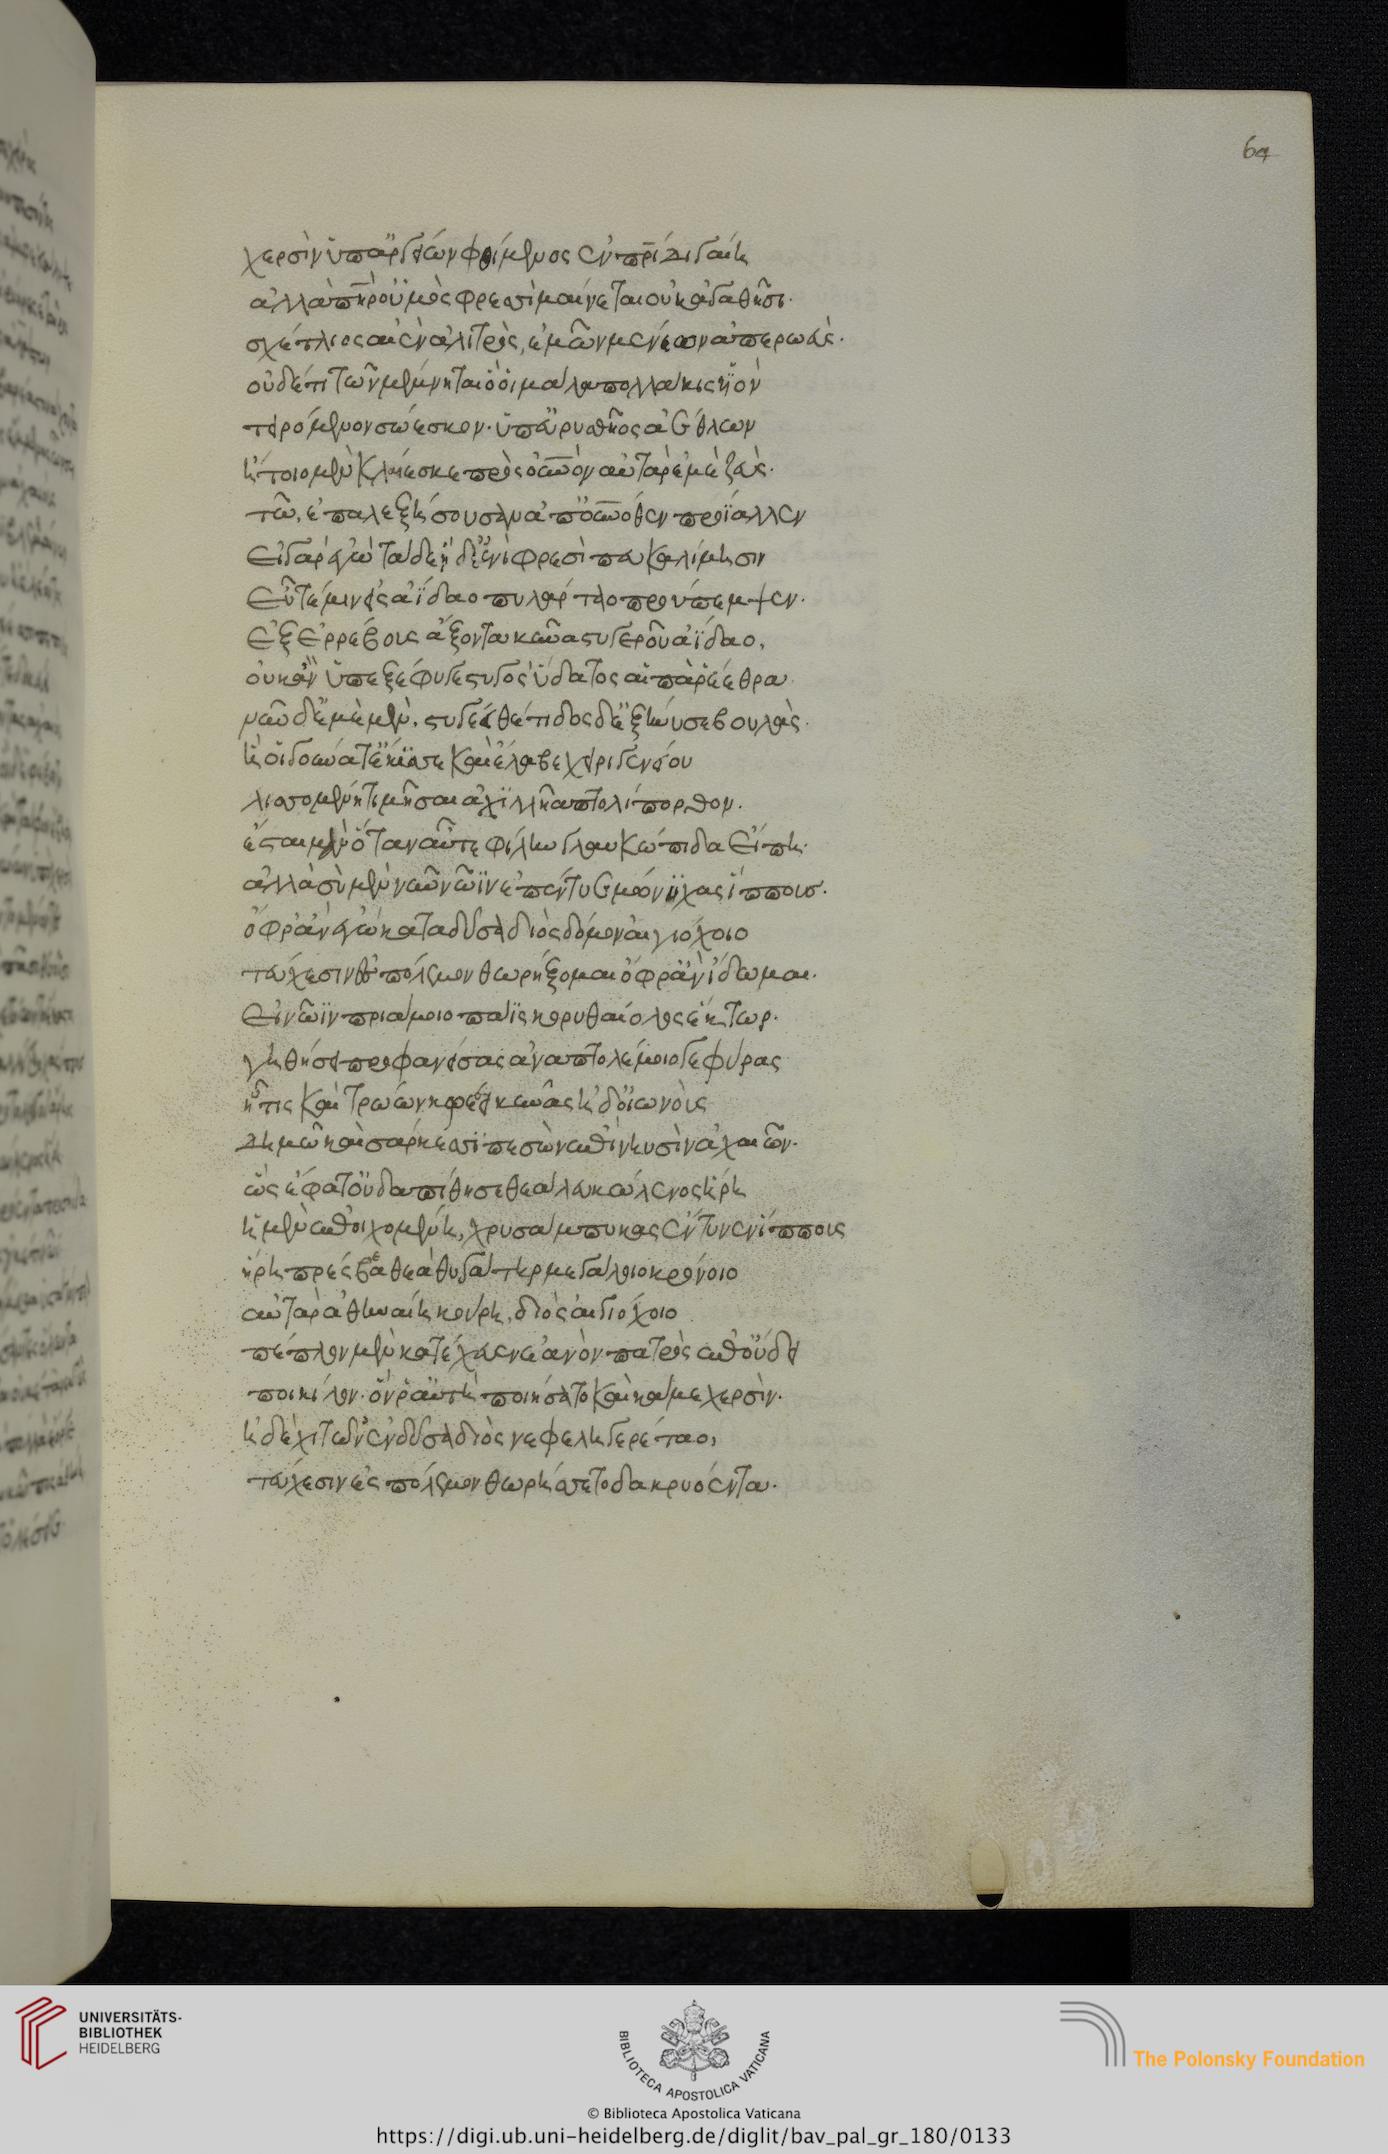 64
χερσὶν ὑπ' ἀργείων φθίμενος ἐν πατρίδι γαίη
ἀλλὰ πατὴρ οὑμὸς φρεσὶ μαίνεται οὐκ ἀγαθῆσι·
σχέτλιος αἰὲν ἀλιτρὸς, ἐμῶν μενέων ἀπερωεὺς·
οὐδέ τι τῶν μέμνηται ὅ οἱ μάλα πολλάκις υἱὸν
τειρόμενον σώεσκον· ὑπ' εὐρυσθῆος ἀέθλων
ἤτοι ὁ μὲν κλαίεσκε πρὸς οὐρανόν αὐτὰρ ἐμὲ ζεὺς·
τῶ, ἐπαλεξήσουσαν ἀπ' οὐρανόθεν προΐαλλεν
εἰ γὰρ ἐγὼ τάδε ἤδε' ἐνὶ φρεσὶ πευκαλίμησιν
εὖτέ μιν εἰς ἀΐδαο πυλάρταο προὔπεμψεν·
ἐξ ἐρρέβους ἄξοντα κύνα στυγεροῦ ἀΐδαο,
οὐκ ἂν ὑπεξέφυγε στυγὸς ὕδατος αἰπὰ ῥέεθρα
νῦν δ' ἐμὲ μὲν στυγέει θέτιδος δ' ἐξήνυσε βουλὰς·
ἥ οἱ γούνατ' ἔκυσε καὶ ἔλαβε χειρὶ γενείου
λισσομένη τιμῆσαι ἀχιλλῆα πτολίπορθον·
ἔσται μὲν ὅταν αὖτε φίλην γλαυκώπιδα εἴπη·
ἀλλὰ σὺ μὲν νῦν νῶϊν ἐπέντυε μώνυχας ἵππους·
ὄφρ' ἂν ἐγὼ καταδῦσα διὸς δόμον αἰγιόχοιο
τεύχεσιν ἐς πόλεμον θωρήξομαι ὄφρ' ἂν ἴδωμαι·
εἰ νῶϊν πριάμοιο πάϊς κορυθαίολος ἕκτωρ·
γηθήσει προφανείσας ἀνὰ πτολέμοιο γεφύρας
ἦ τις καὶ τρώων κορέει κύνας ἠδ' οἰωνοὺς
δημῷ καὶ σάρκεσσι πεσὼν ἐπὶ νηυσὶν ἀχαιῶν·
ὣς ἔφατ' οὐδ' ἀπίθησε θεὰ λευκώλενος ἥρη
ἡ μὲν ἐποιχομένη, χρυσάμπυκας ἔντυεν ἵππους
ἥρη πρέσβα θεὰ θυγάτηρ μεγάλοιο κρόνοιο
αὐτὰρ ἀθηναίη κούρη, διὸς αἰγιόχοιο
πέπλον μὲν κατέχευεν ἑανὸν πατρὸς ἐπ' οὔδει
ποικίλον· ὅν ῥ' αὐτὴ ποιήσατο καὶ κάμε χερσὶν·
ἡ δὲ χιτῶν' ἐνδῦσα διὸς νεφεληγερέταο,
τεύχεσιν ἐς πόλεμον θωρήσσετο δακρυόεντα·
UNIVERSITÄTS-
BIBLIOTHEK
HEIDELBERG
BIBLIOTECA APOSTOLICA VATICANA
The Polonsky Foundation
© Biblioteca Apostolica Vaticana
https://digi.ub.uni-heidelberg.de/diglit/bav_pal_gr_180/0133